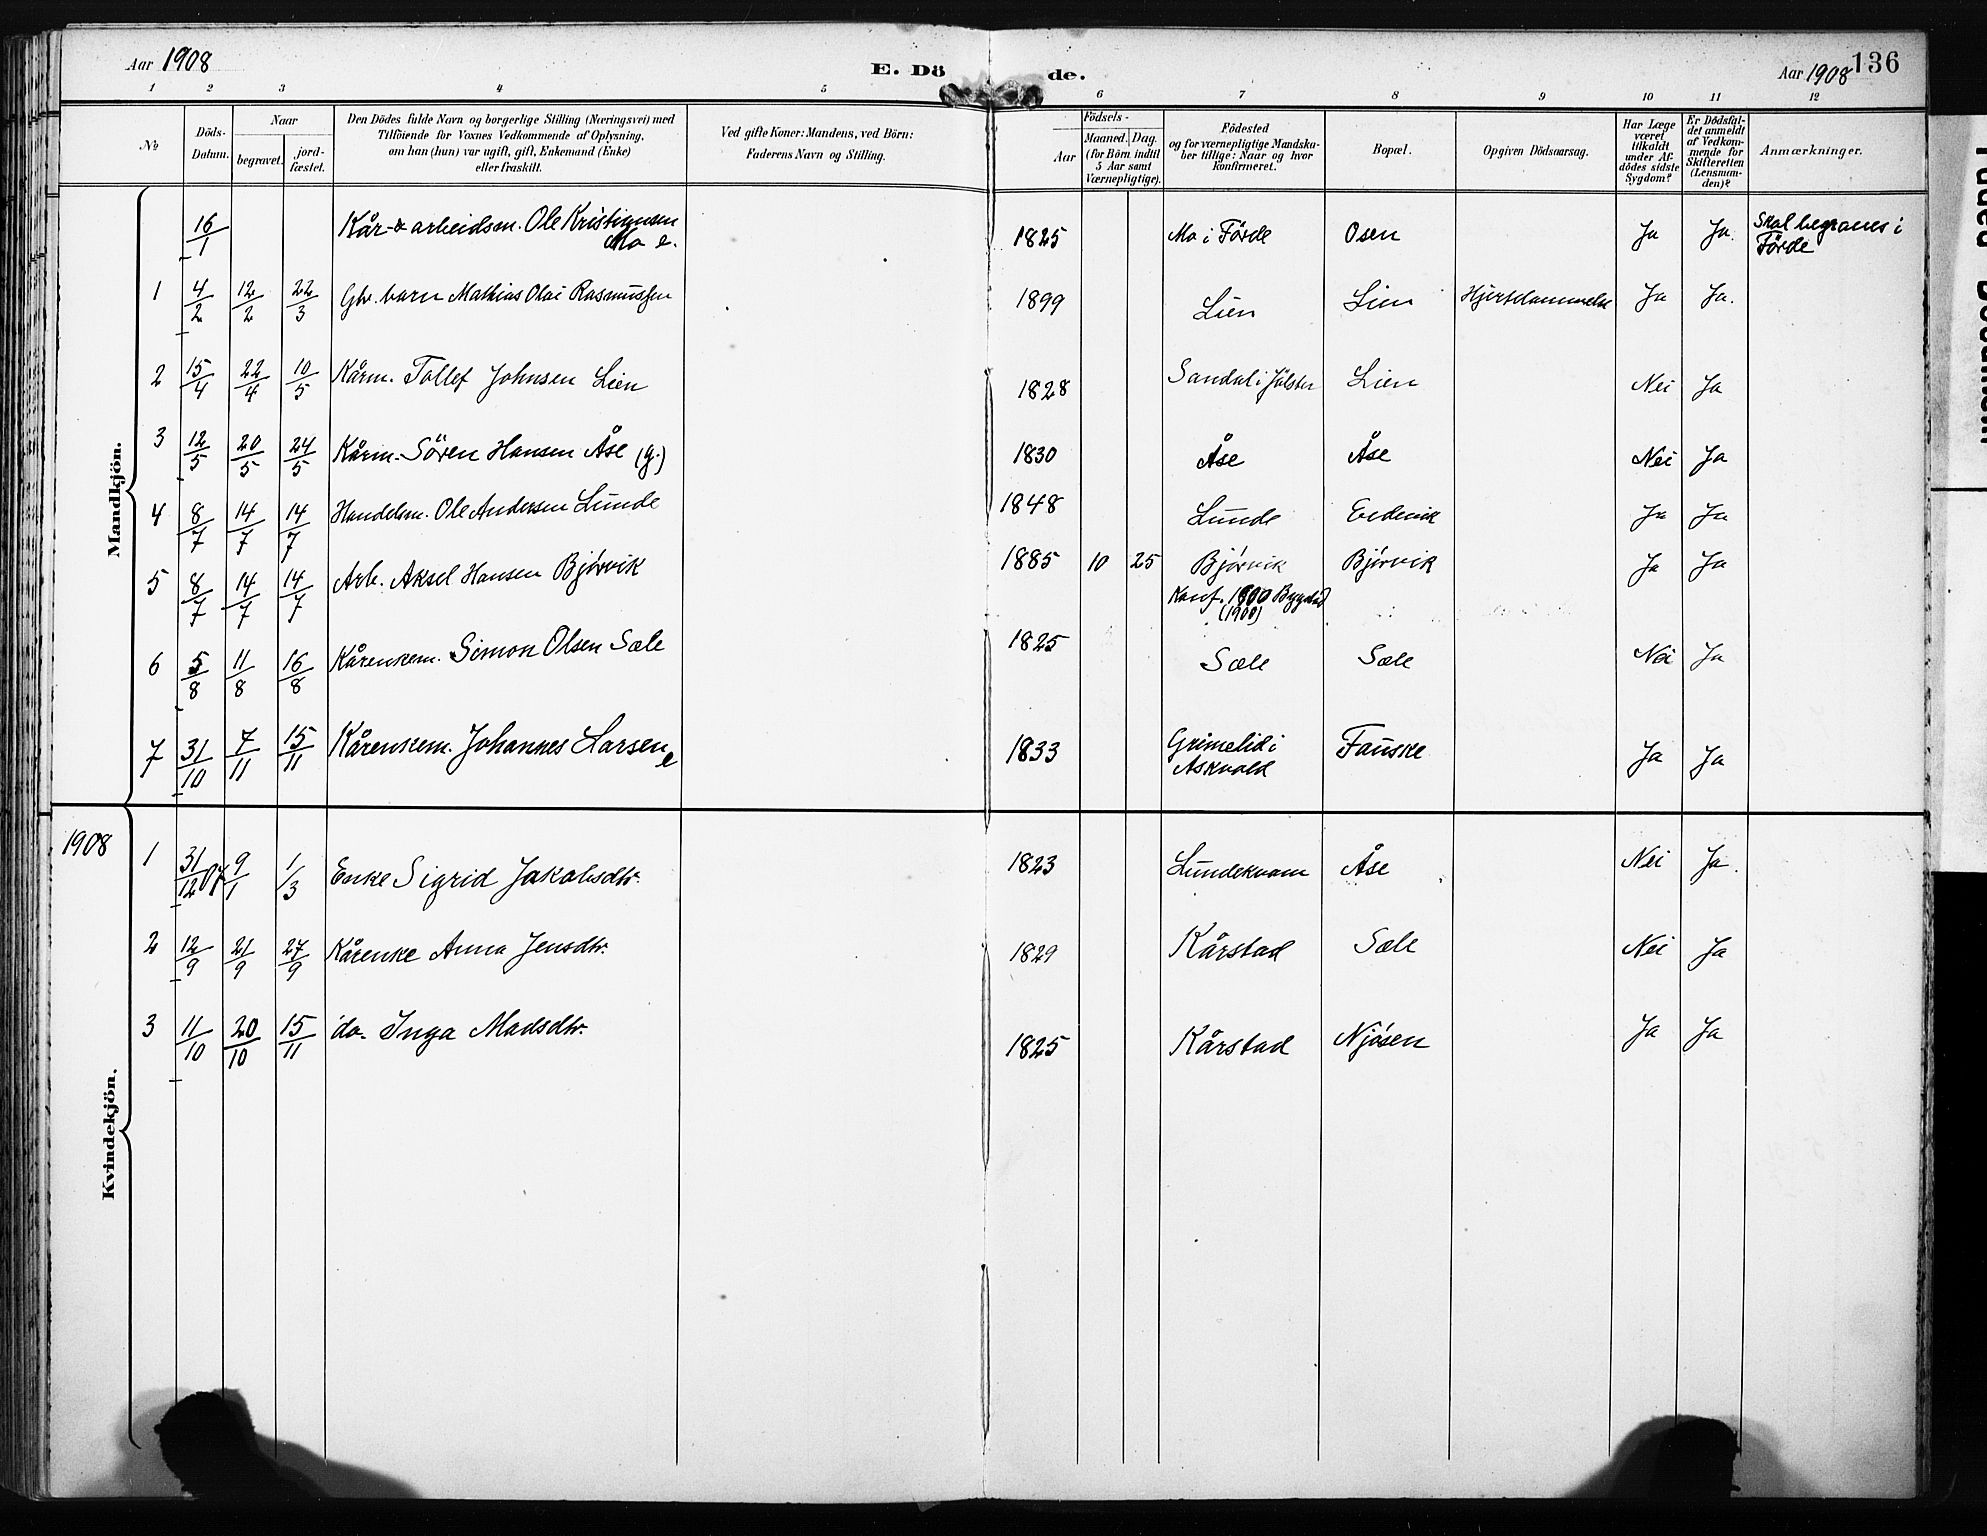 Aar 1908 E. Dö de. Aar 1908 136
1 2 3 4 5 6 7 8 9 10 11 12
№ Döds-Datum. Naar begravet. jordfæstet. Den Dödes fulde Navn og borgerlige Stilling (Næringsvei) med Tilföiende for Voxnes Vedkommende af Oplysning, om han (hun) var ugift, gift, Enkemand (Enke) eller fraskilt. Ved gifte Koner: Mandens, ved Börn: Faderens Navn og Stilling. Födsels- Aar Maaned. Dag. (for Börn indtil 5 Aar samt Værnepligtige). Födested og for værnepligtige Mandskaber tillige: Naar og hvor konfirmeret. Bopæl. Opgiven Dödsaarsag. Har Læge været tilkaldt under Afdödes sidste Sygdom? Er Dödsfaldet anmeldt af Vedkommende for Skifteretten (Lensmanden)? Anmærkninger.
Mandkjön.
16/1 Kår- & arbeidsm. Ole Kristiansen Mo e. 1825 Mo i Förde Osen Ja Ja. Skal begraves i Förde
1 4/2 12/2 22/3 Gbr. barn Mathias Olai Rasmussen 1899 Lien Lien Hjertelammelse Ja Ja.
2 15/4 22/4 10/5 Kårm. Tollef Johnsen Lien 1828 Sandal i Jölster Lien Nei Ja
3 12/5 20/5 24/5 Kårm. Sören Hansen Åse (g.) 1830 Åse Åse Nei Ja
4 8/7 14/7 14/7 Handelsm. Ole Andersen Lunde 1848 Lunde Ja Ja
5 8/7 14/7 14/7 Arb. Aksel Hansen Bjørvik 1885 10 25 Bjørvik Bjørvik Ja Ja
Konf. 1900 Bygstad
(1900)
6 5/8 11/8 16/8 Kårenkem. Simon Olsen Sæle 1825 Sæle Sæle Nei Ja
7 31/10 7/11 15/11 Kårenkem. Johannes Larsen e 1833 Grimelid i Askvold Fauske Ja Ja
Kvindekjön.
1908 1 31/12 07 9/1 1/3 Enke Sigrid Jakobsdtr. 1823 Lundekvam Åse Nei Ja.
2 12/9 21/9 27/9 Kårenke Anna Jensdtr. 1829 Kårstad Sæle Nei Ja
3 11/10 20/10 15/11 do. Inga Madsdtr. 1825 Kårstad Njøsen Ja Ja